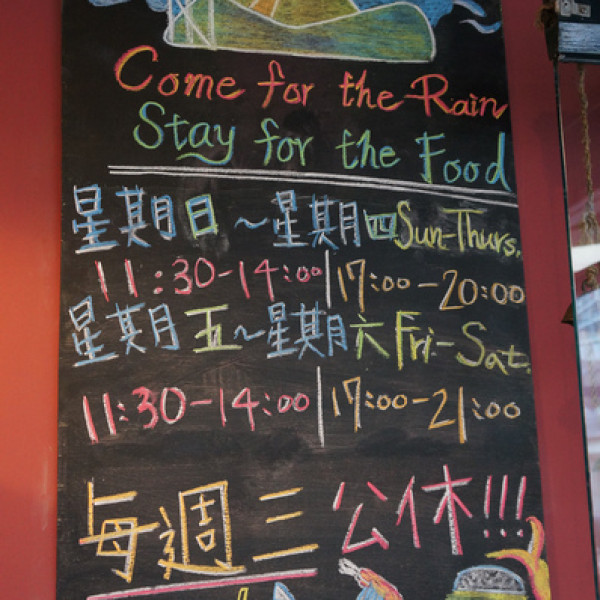 Come for the Rain
Stay for the Food
星期日～星期四Sun-Thurs.
11:30-14:00|17:00-20:00
星期五～星期六Fri-Sat.
11:30-14:00|17:00-21:00
每週三公休!!!